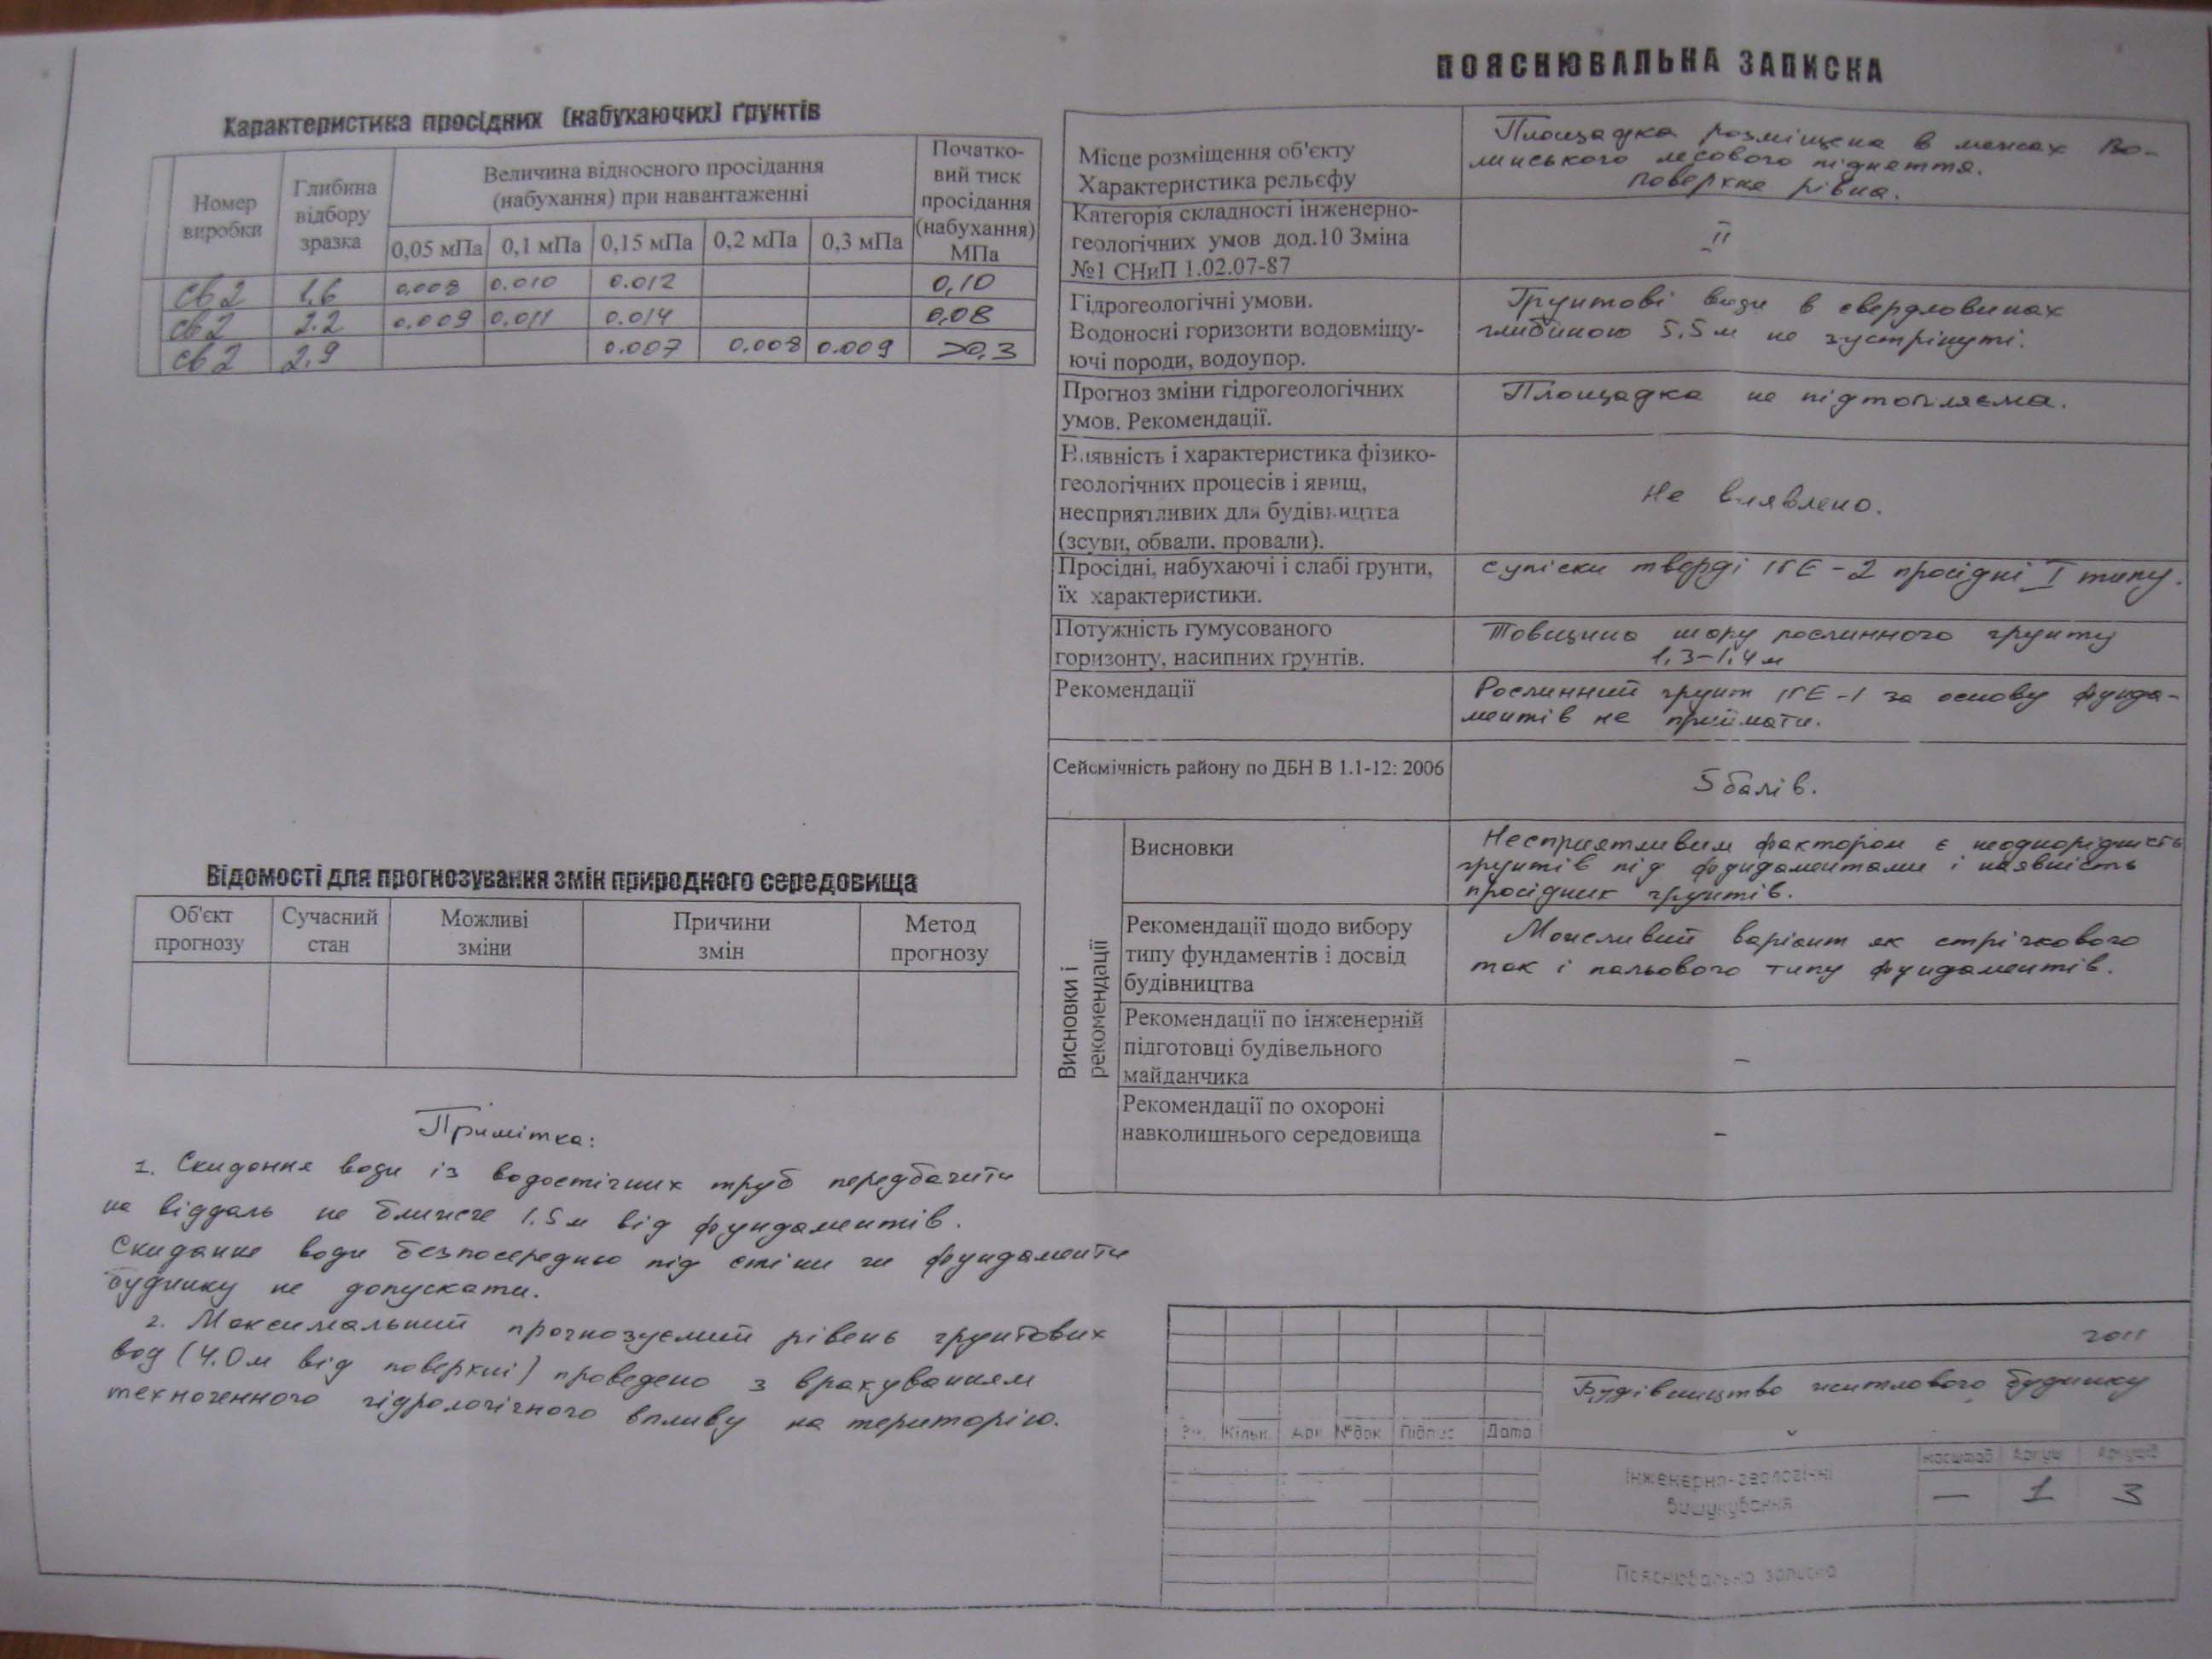 ПОЯСНЮВАЛЬНА ЗАПИСКА
Характеристика просідних (набухаючих) ґрунтів
Номер виробки
Глибина відбору зразка
Величина відносного просідання
(набухання) при навантаженні
Початко-
вий тиск
просідання
(набухання)
МПа
0,05 мПа 0,1 мПа 0,15 мПа 0,2 мПа 0,3 мПа
св 2 1,6 0.008 0.010 0.012 0,10
св 2 2.2 0.009 0.011 0.014 0,08
св 2 2,9 0.007 0.008 0.009 >0,3
Відомості для прогнозування змін природного середовища
Об'єкт прогнозу
Сучасний стан
Можливі зміни
Причини змін
Метод прогнозу
Примітка:
1. Скидання води із водостічних труб передбачити
на віддаль не ближче 1.5 м від фундаментів.
Скидання води безпосередньо під стіни чи фундаменти
будинку не допускати.
2. Максимальний прогнозуємий рівень грунтових
вод (4.0 м від поверхні) проведено з врахуванням
техногенного гідрологічного впливу на територію.
Місце розміщення об'єкту
Характеристика рельєфу
Площадка розміщена в межах Во-
линського лесового підняття.
Поверхня рівна.
Категорія складності інженерно-
геологічних умов дод.10 Зміна
№1 СНиП 1.02.07-87
II
Гідрогеологічні умови.
Водоносні горизонти водовміщу-
ючі породи, водоупор.
Грунтові води в свердловинах
глибиною 5.5 м не зустрінуті.
Прогноз зміни гідрогеологічних
умов. Рекомендації.
Площадка не підтопляєма.
Наявність і характеристика фізико-
геологічних процесів і явищ,
несприятливих для будівництва
(зсуви, обвали, провали).
Не виявлено.
Просідні, набухаючі і слабі ґрунти,
їх характеристики.
супіски тверді ІГЕ-2 просідні I типу.
Потужність гумусованого
горизонту, насипних ґрунтів.
Товщина шару рослинного грунту
1,3-1,4 м
Рекомендації
Рослинний грунт ІГЕ-1 за основу фунда-
ментів не приймати.
Сейсмічність району по ДБН В 1.1-12: 2006
5 балів.
Висновки і
рекомендації
Висновки
Несприятливим фактором є неоднорідність
грунтів під фундаментами і наявність
просідних грунтів.
Рекомендації щодо вибору
типу фундаментів і досвід
будівництва
Можливий варіант як стрічкового
так і пальового типу фундаментів.
Рекомендації по інженерній
підготовці будівельного
майданчика
–
Рекомендації по охороні
навколишнього середовища
–
2011
Будівництво житлового будинку
Зм. Кільк. Арк №док Підпис Дата
Інженерно-геологічні
вишукування
масштаб Аркуш Аркушів
— 1 3
Пояснювальна записка